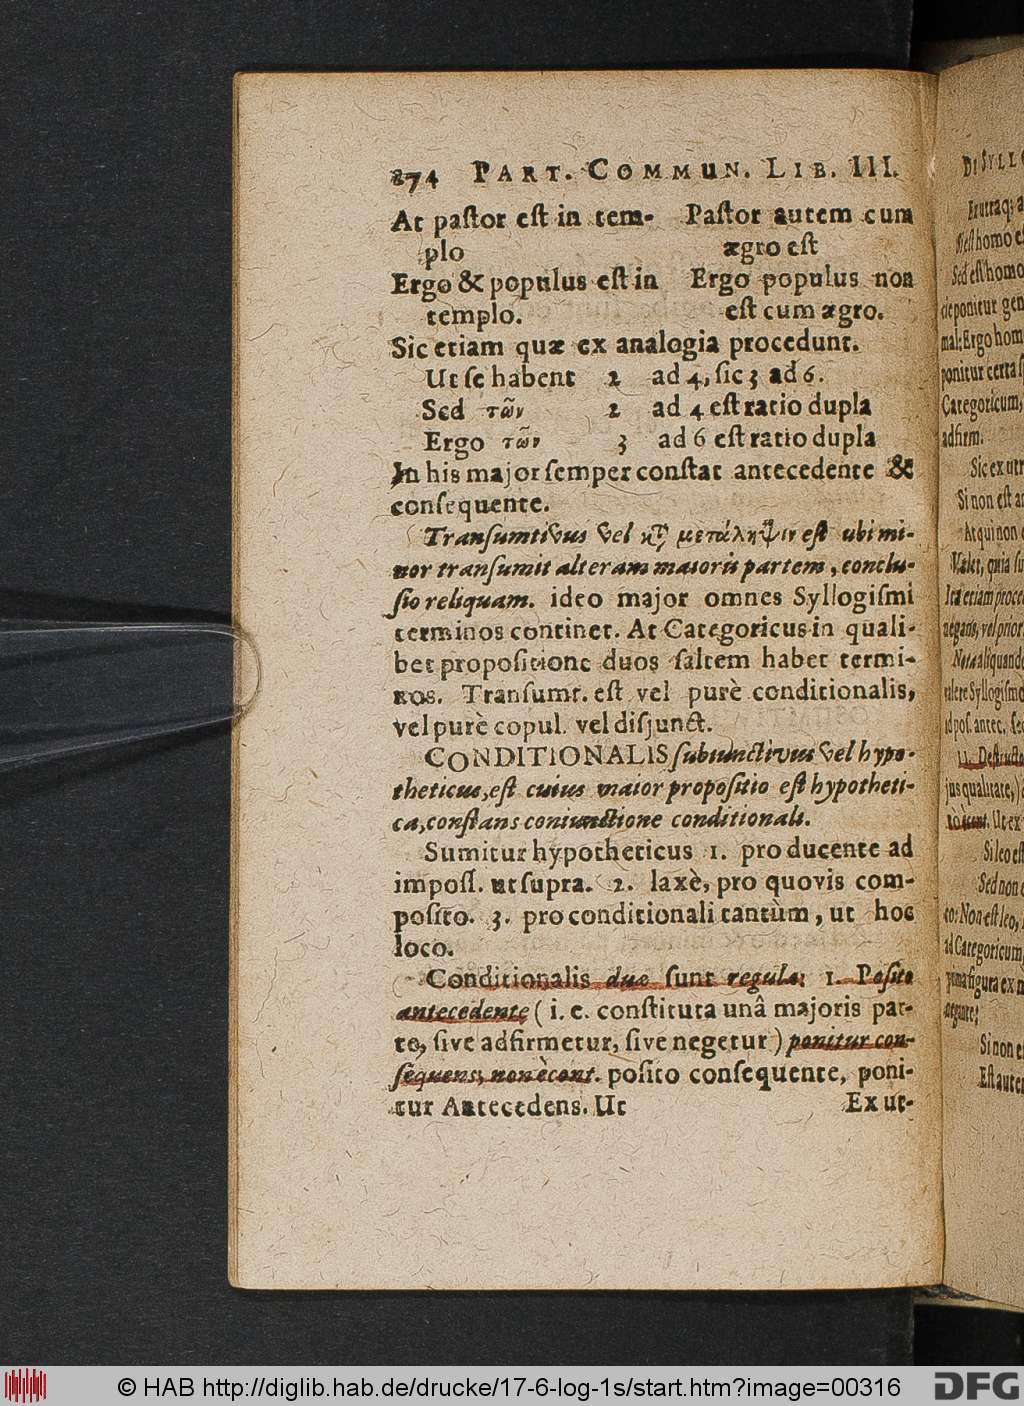 274 PART. COMMUN. LIB. III.
At paſtor eſt in tem- Paſtor autem cum
plo ægro eſt
Ergo & populus eſt in Ergo populus non
templo. eſt cum ægro.
Sic etiam quæ ex analogia procedunt.
Ut ſe habent 2 ad 4, ſic 3 ad 6.
Sed τῶν 2 ad 4 eſt ratio dupla
Ergo τῶν 3 ad 6 eſt ratio dupla
In his major ſemper conſtat antecedente &
conſequente.
Tranſumtivus vel κτ μετάληψιν eſt ubi mi-
nor tranſumit alteram maioris partem, conclu-
ſio reliquam. ideo major omnes Syllogiſmi
terminos continet. At Categoricus in quali-
bet propoſitione duos ſaltem habet termi-
nos. Tranſumt. eſt vel purè conditionalis,
vel purè copul. vel disjunct.
CONDITIONALIS ſubiunctivus vel hypo-
theticus, eſt cuius maior propoſitio eſt hypotheti-
ca, conſtans coniunctione conditionali.
Sumitur hypotheticus 1. pro ducente ad
impoſſ. ut ſupra. 2. laxè, pro quovis com-
poſito. 3. pro conditionali tantùm, ut hoc
loco.
Conditionalis duæ ſunt regulæ: 1. Poſito
antecedente (i. e. conſtituta unâ majoris par-
te, ſive adfirmetur, ſive negetur) ponitur con-
ſequens, non ècont. poſito conſequente, poni-
tur Antecedens. Ut Ex ut-
DE SYLLO
Ex utraq; a
eſt homo e
Sed eſt homo
cie ponitur gen
mal: Ergo hom
ponitur certa ſ
Categoricum,
adfirm.
Sic ex utr
Si non eſt a
Atqui non
Valet, quia ſu
Ita etiam proce
negans, vel prior
Nota aliquand
valere Syllogiſmo
id poſ. antec. ſe
11. Deſtructo
jus qualitate,)
nò ècont. Ut ex
Si leo eſt
Sed non e
to: Non eſt leo,
ad Categoricum,
prima figura ex n
negante;
Si non e
Eſt autem
© HAB http://diglib.hab.de/drucke/17-6-log-1s/start.htm?image=00316 DFG